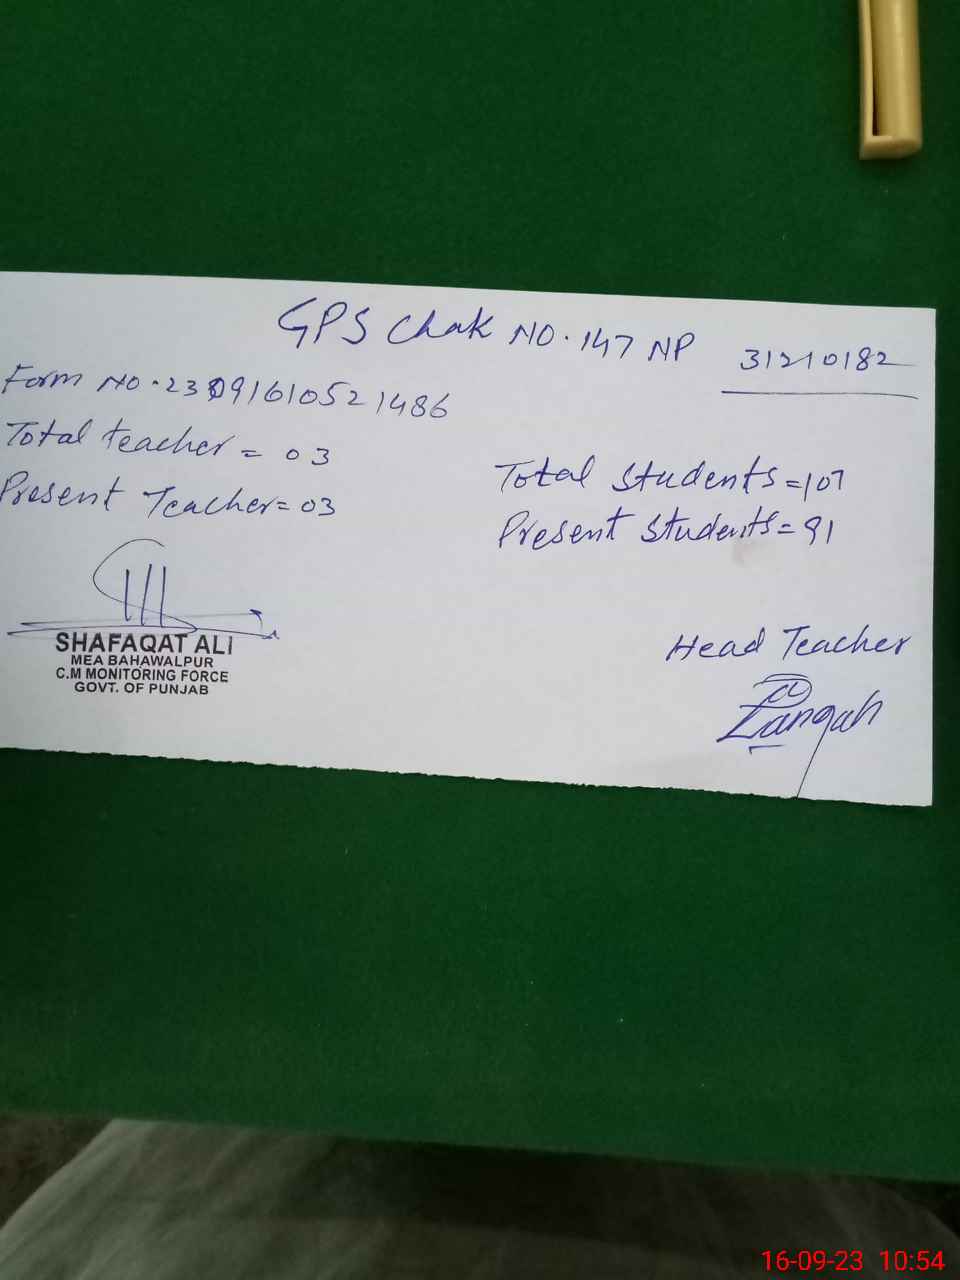 GPS Chak NO. 147 NP 31210182
Form NO. 23091610521486
Total teacher = 03
Present Teacher = 03
Total Students = 107
Present Students = 91
SHAFAQAT ALI
MEA BAHAWALPUR
C.M MONITORING FORCE
GOVT. OF PUNJAB
Head Teacher
Langah
16-09-23 10:54